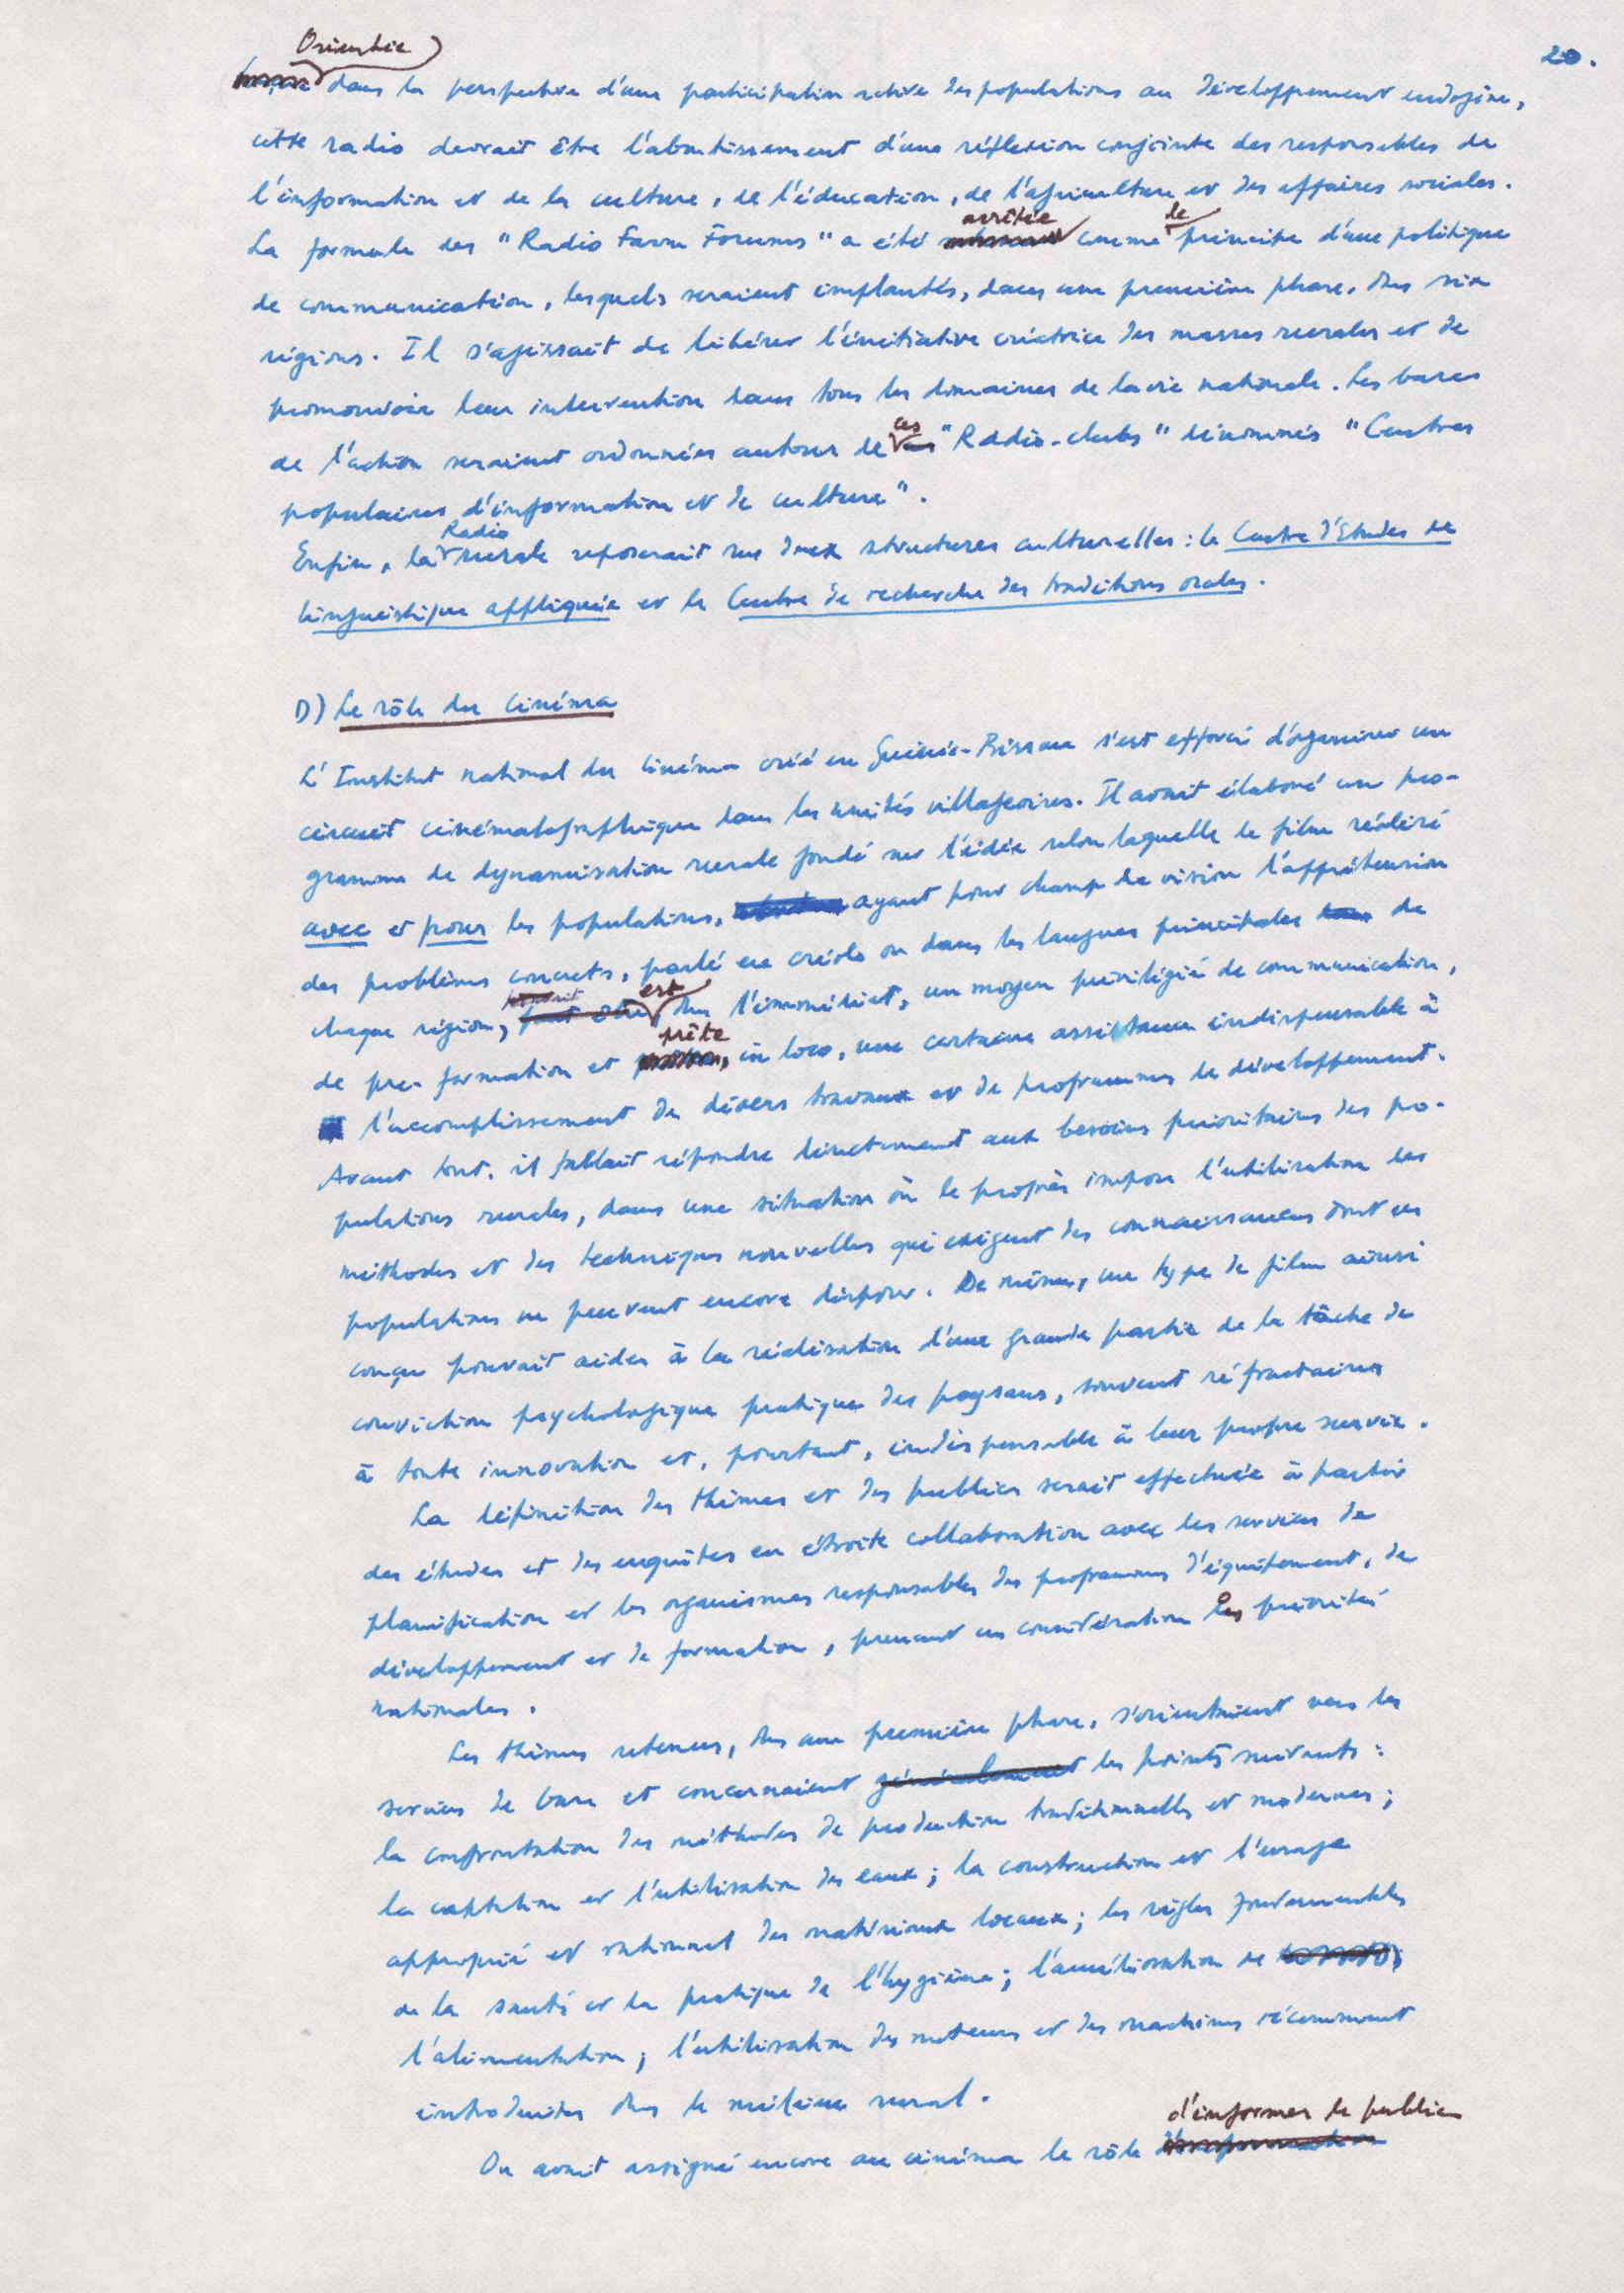 20.
Orientée
dans la perspective d'une participation active des populations au développement endogène,
cette radio devrait être l'aboutissement d'une réflexion conjointe des responsables de
l'information et de la culture, de l'éducation, de l'agriculture et des affaires sociales.
La formule des "Radio Farm Forums" a été arrêtée comme le principe d'une politique
de communication, lesquels seraient implantés, dans une première phase, dans six
régions. Il s'agissait de libérer l'initiative créatrice des masses rurales et de
promouvoir leur intervention dans tous les domaines de la vie nationale. Les bases
de l'action seraient ordonnées autour de ces "Radio-clubs" dénommés "Centres
populaires d'information et de culture".
Enfin, la Radio rurale reposerait sur deux structures culturelles : le Centre d'Etudes de
linguistique appliquée et le Centre de recherche des traditions orales.
D) Le rôle du Cinéma
L'Institut national du Cinéma créé en Guinée-Bissau s'est efforcé d'organiser un
circuit cinématographique dans les unités villageoises. Il avait élaboré un pro-
gramme de dynamisation rurale fondé sur l'idée selon laquelle le film réalisé
avec et pour les populations, ayant pour champ de vision l'appréhension
des problèmes concrets, parlé en créole ou dans les langues principales de
chaque région, est, dans l'immédiat, un moyen privilégié de communication,
de pré-formation et prête, in loco, une certaine assistance indispensable à
l'accomplissement de divers travaux et de programmes de développement.
Avant tout, il fallait répondre directement aux besoins prioritaires des po-
pulations rurales, dans une situation où le progrès impose l'utilisation des
méthodes et des techniques nouvelles qui exigent des connaissances dont ces
populations ne peuvent encore disposer. De même, un type de film ainsi
conçu pouvait aider à la réalisation d'une grande partie de la tâche de
conviction psychologique pratique des paysans, souvent réfractaires
à toute innovation et, pourtant, indispensable à leur propre survie.
La définition des thèmes et des publics serait effectuée à partir
des études et des enquêtes en étroite collaboration avec les services de
planification et les organismes responsables des programmes d'équipement, de
développement et de formation, prenant en considération les priorités
nationales.
Les thèmes retenus, dans une première phase, s'orientaient vers les
services de base et concernaient généralement les points suivants :
la confrontation des méthodes de production traditionnelles et modernes ;
la captation et l'utilisation des eaux ; la construction et l'usage
approprié et rationnel des matériaux locaux ; les règles fondamentales
de la santé et la pratique de l'hygiène ; l'amélioration de
l'alimentation ; l'utilisation des moteurs et des machines récemment
introduites dans le milieu rural.
On avait assigné encore au cinéma le rôle d'informer le public